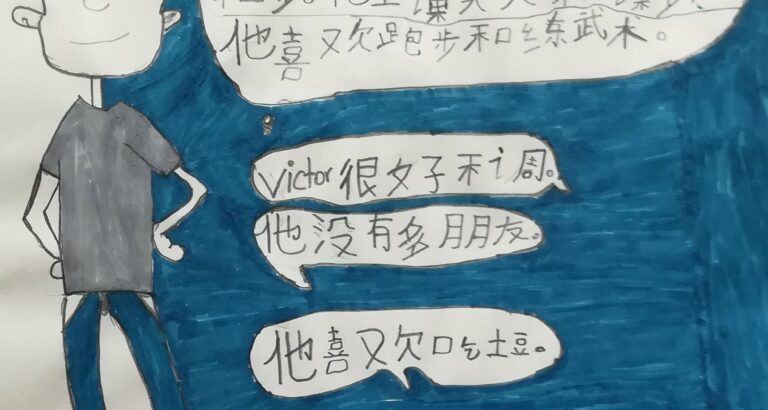 他喜欢跑步和练武术。
Victor很好禾调。
他没有多朋友。
他喜欢吃土豆。